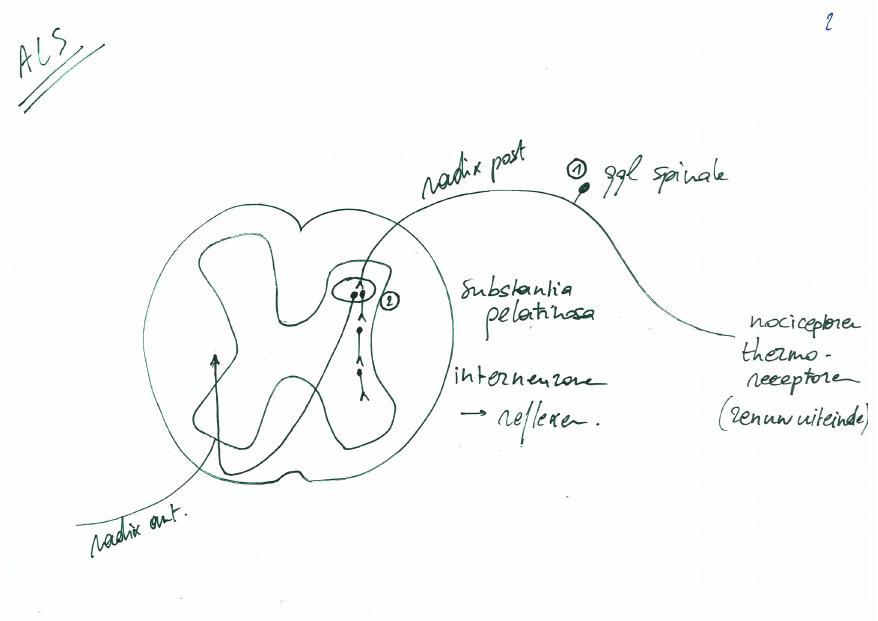 2
ALS
radix post
① ggl spinale
②
substantia
gelatinosa
nociceptoren
thermo-
receptoren
(zenuwuiteinde)
interneuronen
→ reflexen.
radix ant.